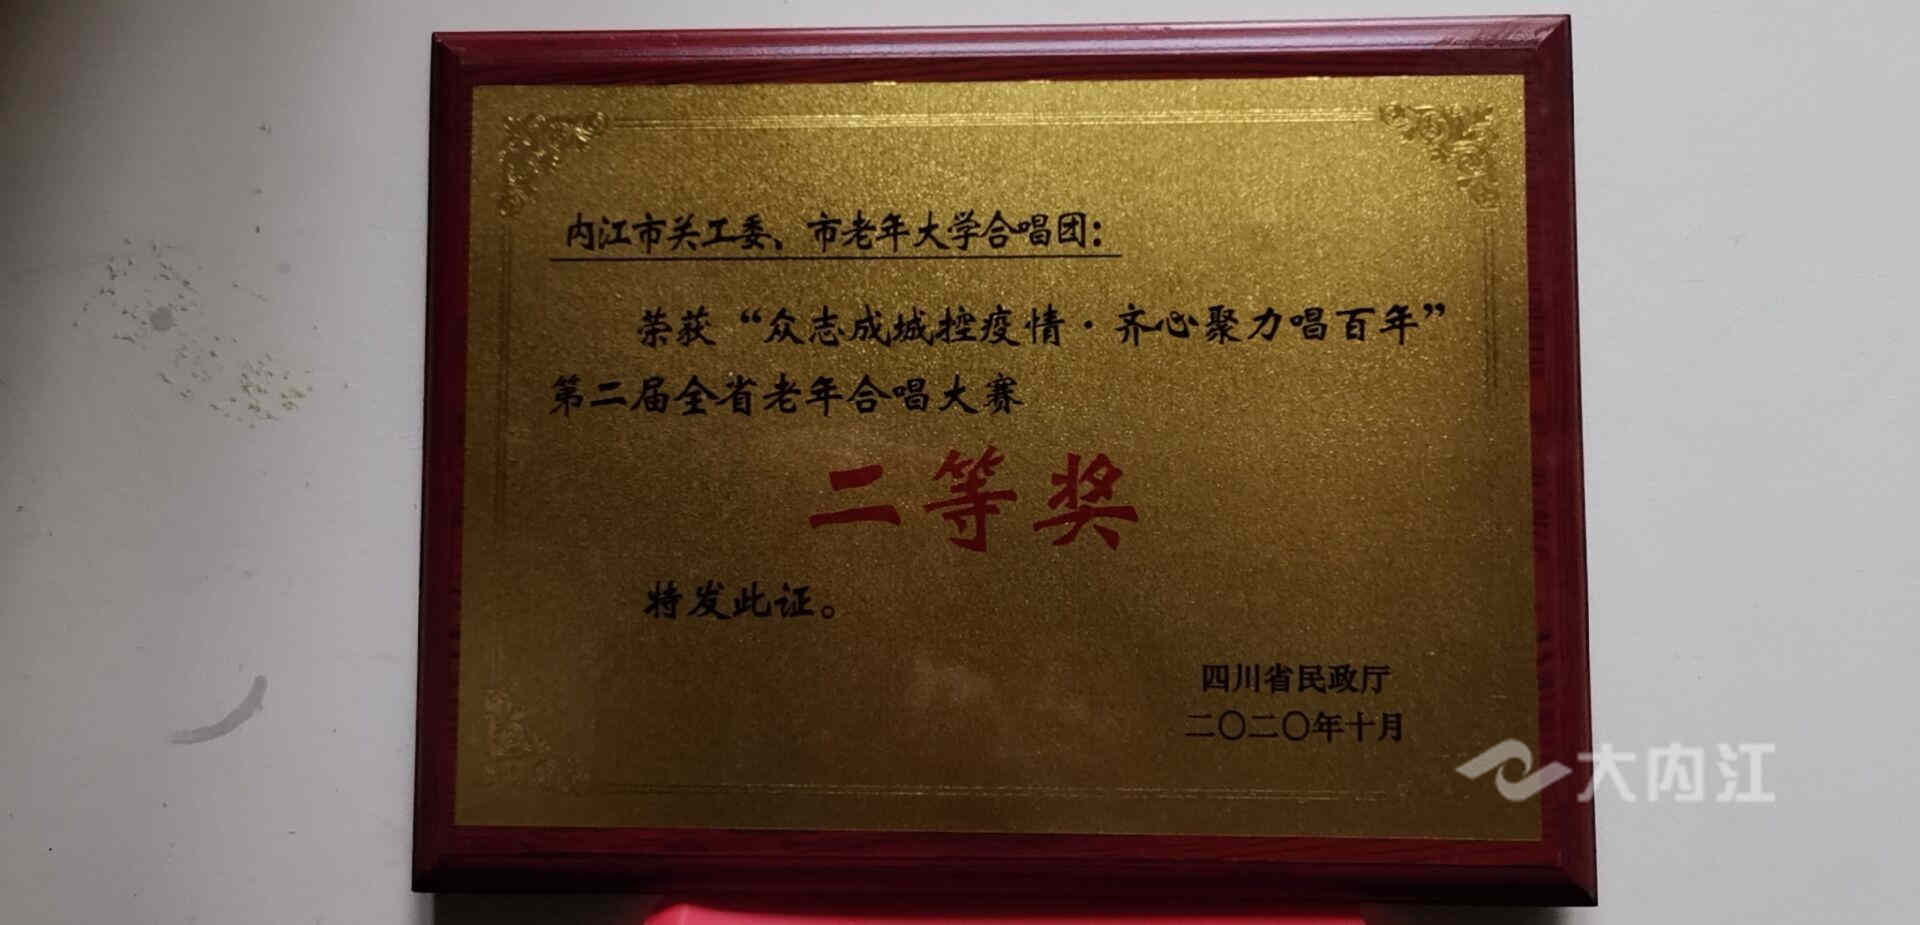 内江市关工委、市老年大学合唱团：
荣获“众志成城控疫情·齐心聚力唱百年”
第二届全省老年合唱大赛
二等奖
特发此证。
四川省民政厅
二〇二〇年十月
大内江